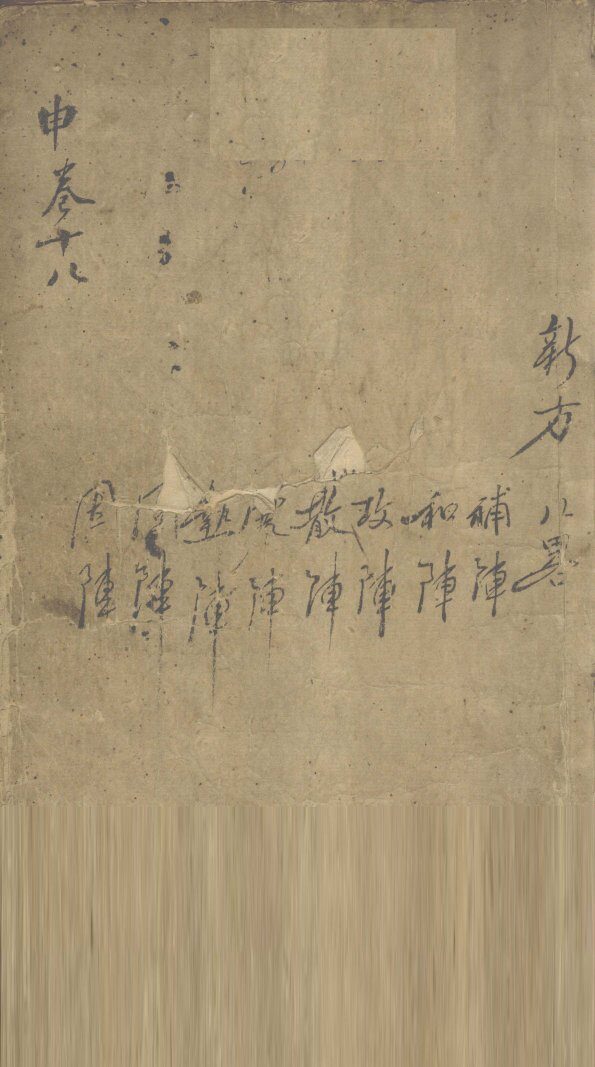 新方八畧
補陣
和陣
攻陣
散陣
陣
熱陣
固陣
因陣
申巻十八